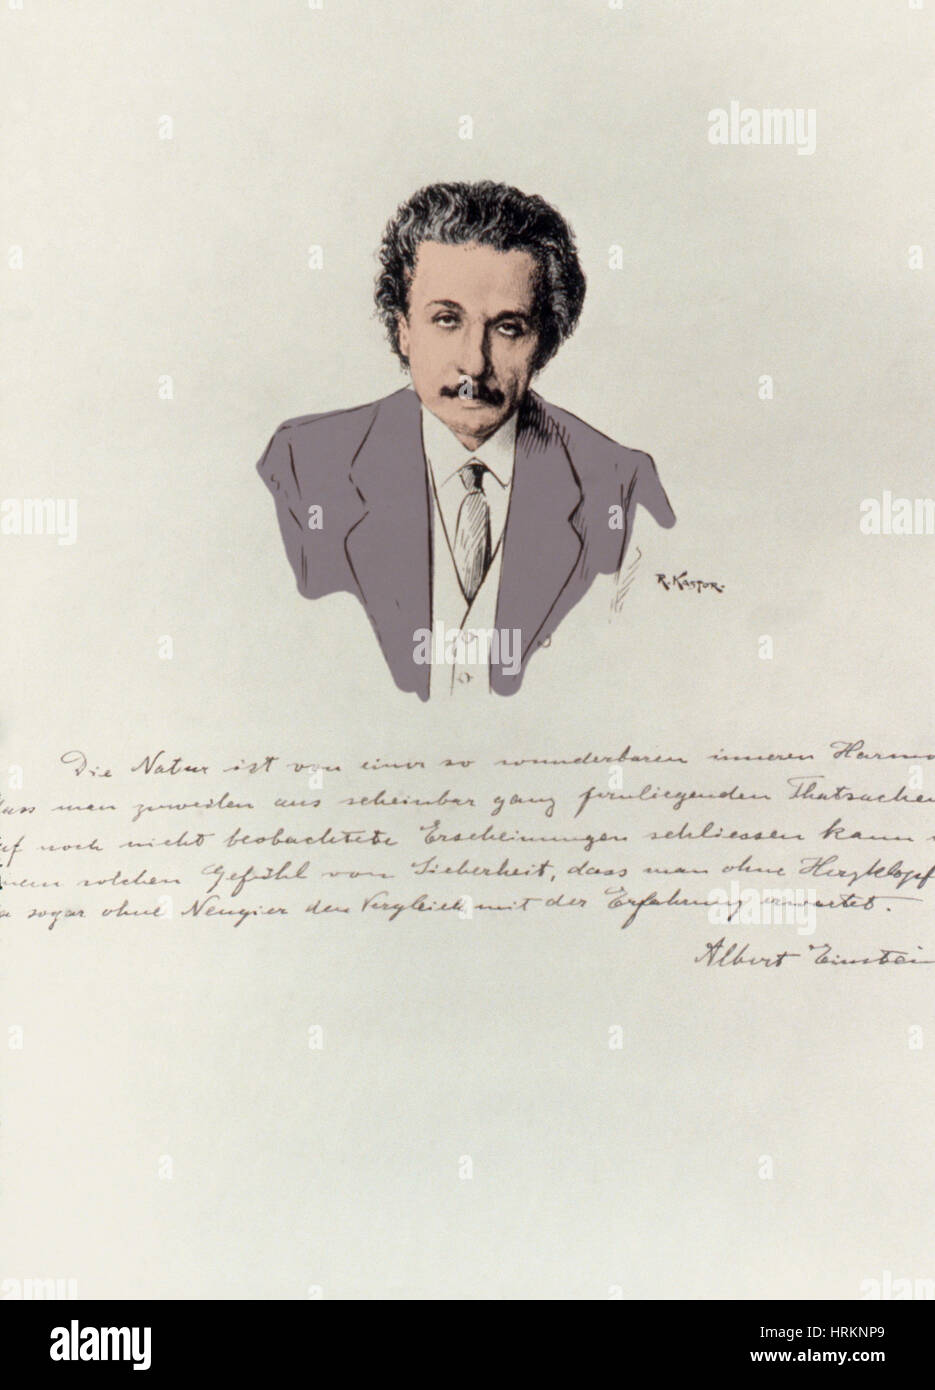 alamy
R. Kastor.
Die Natur ist von einer so wunderbaren inneren Harmo
dass man zuweilen aus scheinbar ganz fernliegenden Thatsachen
uf noch nicht beobachtete Erscheinungen schliessen kann
inem solchen Gefühl von Sicherheit, dass man ohne Herzklopf
ja sogar ohne Neugier den Vergleich mit der Erfahrung erwartet.
Albert Einstein
alamy
Image ID: HRKNP9
www.alamy.com